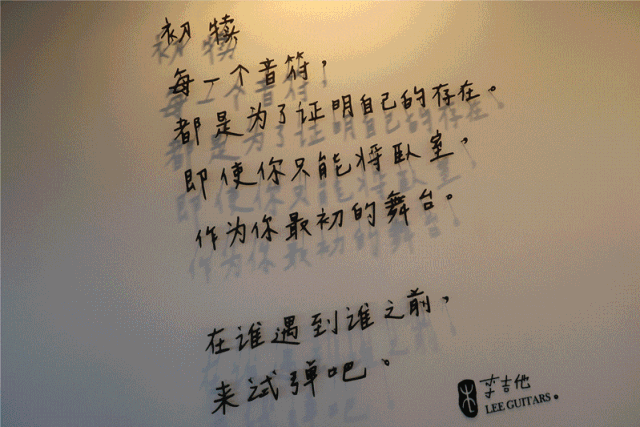 初犊
每一个音符，
都是为了证明自己的存在。
即使你只能将卧室，
作为你最初的舞台。
在谁遇到谁之前，
来试弹吧。
李吉他
LEE GUITARS。